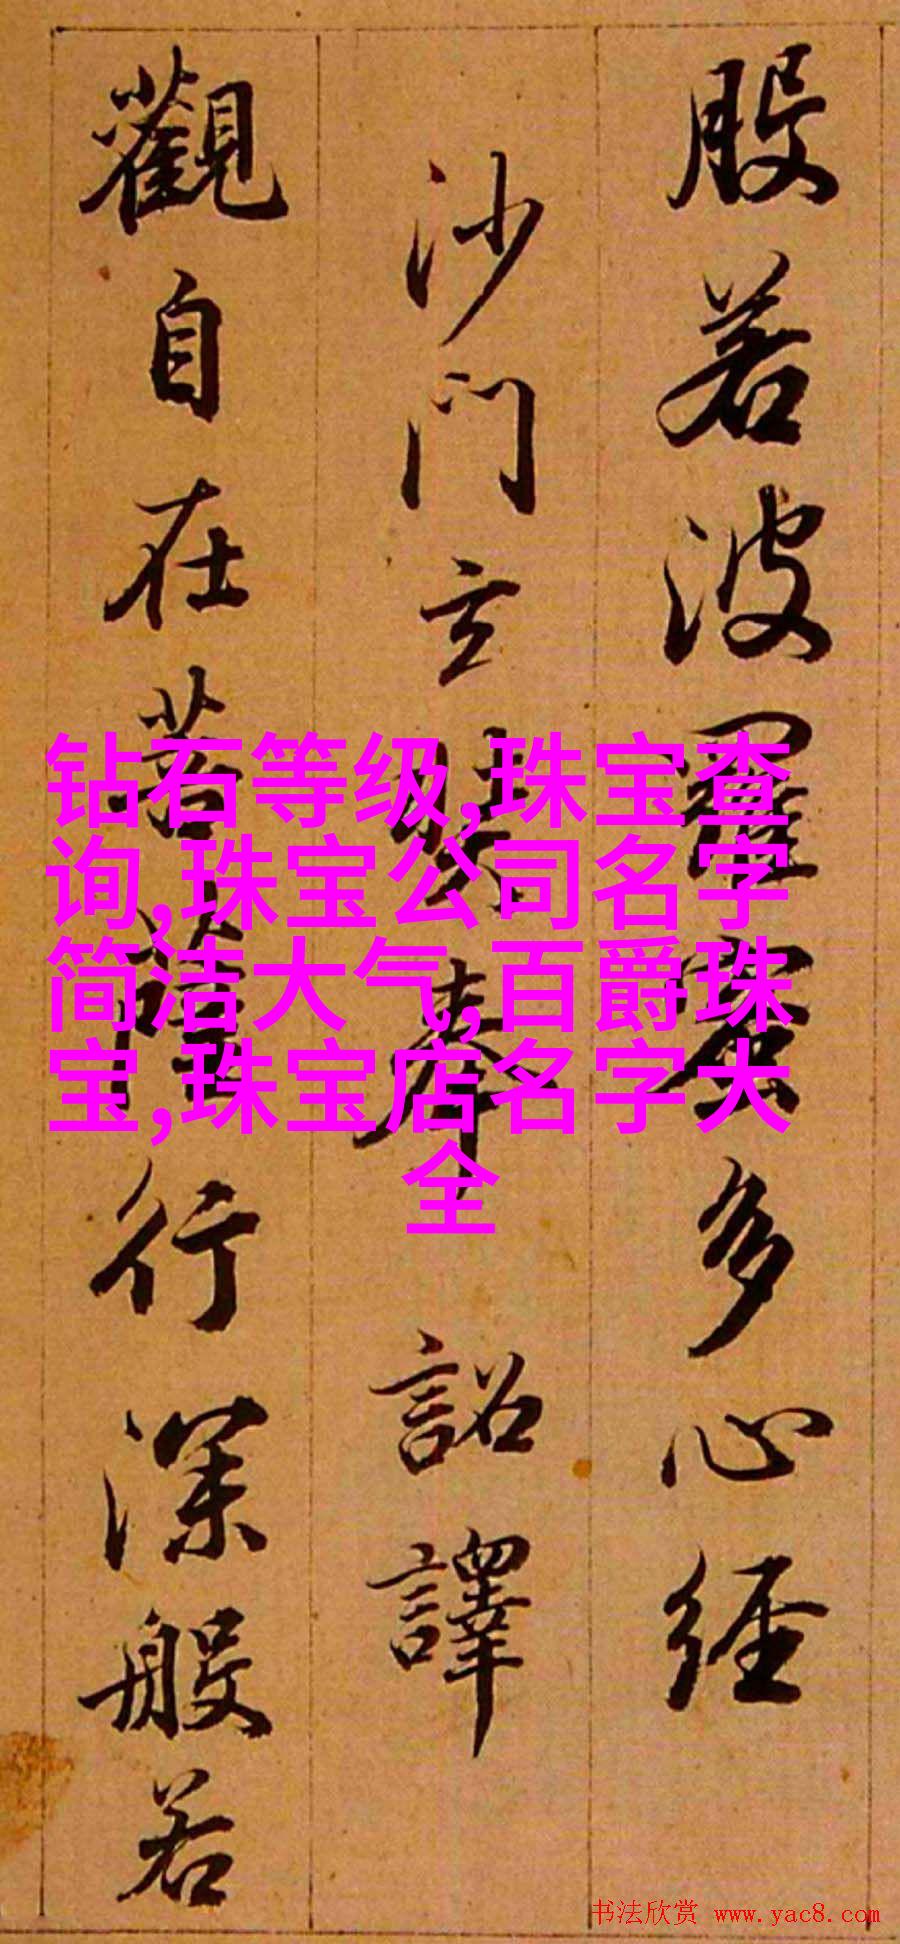 般若波羅蜜多心經
沙門玄奘奉 詔譯
觀自在菩薩行深般若
钻石等级,珠宝查
询,珠宝公司名字
简洁大气,百爵珠
宝,珠宝店名字大
全
书法欣赏 www.yac8.com